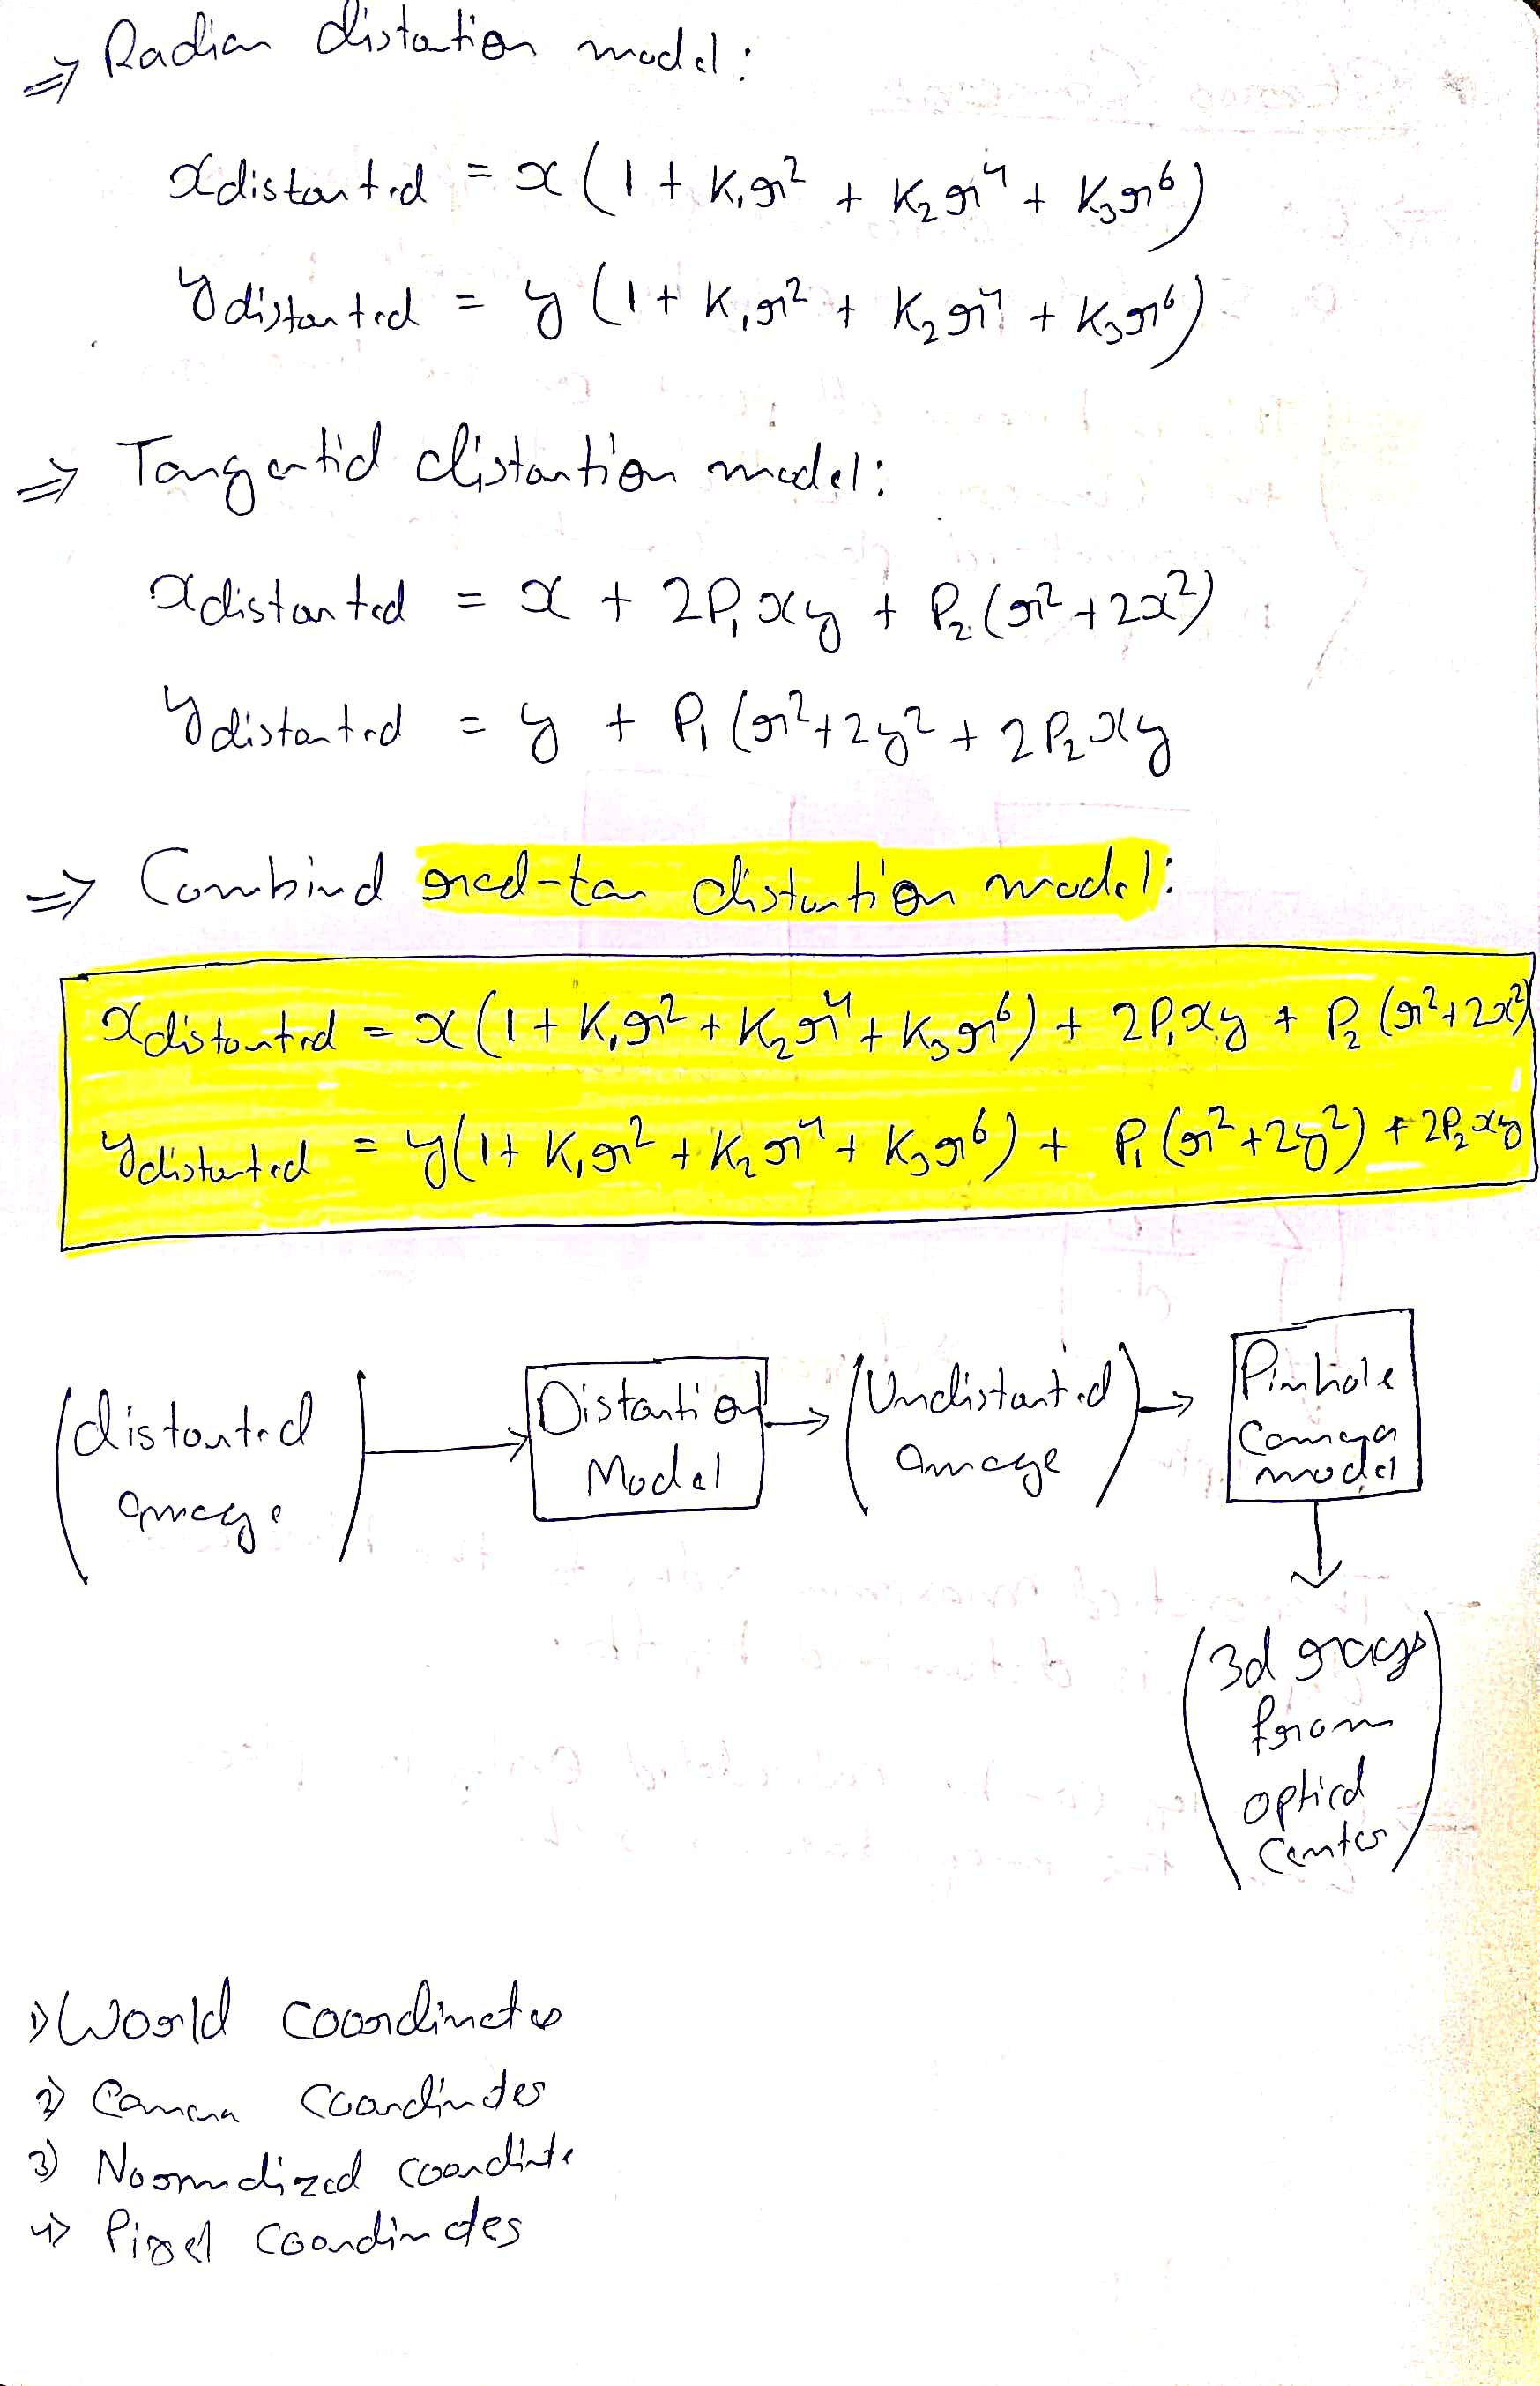 ⇒ Radian distortion model:
xdistorted = x(1 + K₁r² + K₂r⁴ + K₃r⁶)
ydistorted = y(1 + K₁r² + K₂r⁴ + K₃r⁶)
⇒ Tangential distortion model:
xdistorted = x + 2P₁xy + P₂(r²+2x²)
ydistorted = y + P₁(r²+2y² + 2P₂xy
⇒ Combind rad-tan distortion model:
xdistorted = x(1 + K₁r² + K₂r⁴ + K₃r⁶) + 2P₁xy + P₂(r²+2x²)
ydistorted = y(1+ K₁r² + K₂r⁴ + K₃r⁶) + P₁(r²+2y²) + 2P₂xy
(distorted image) → Distortion Model → (Undistorted image) → Pinhole Camera model
(3d rays
from
optical
center)
1) World coordinates
2) Camera coordinates
3) Normalized coordinate
4) Pixel coordinates